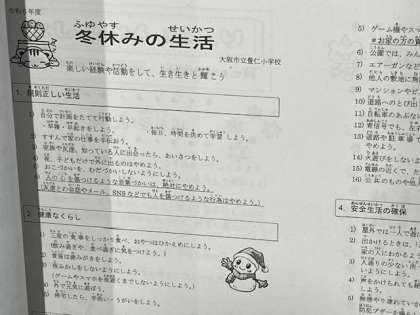 令和6年度
冬休みの生活
ふゆやす
せいかつ
大阪市立豊仁小学校
楽しい経験や活動をして、生き生きと輝こう
1. 規則正しい生活
1) 自分で計画をたてて行動しよう。
・早寝・早起きをしよう。 ・毎日、時間を決めて学習しよう。
2) すすんで家の仕事を手伝おう。
3) 家族や友達、知っている人に出会ったら、あいさつをしよう。
4) 夜、子どもだけで外に出るのはやめよう。
5) おこづかいを、むだづかいしないようにしよう。
6) 人の心を傷つけるような言葉づかいは、絶対にやめよう。
(友達との会話やメール、SNSなどでも人を傷つけるような行為はやめよう。)
2. 健康なくらし
1) 三度の食事をしっかり食べ、おやつはひかえめにしよう。
(飲み過ぎや、食べ過ぎに気をつけよう。)
2) 食後は歯みがきをしよう。
3) 夜ふかしをしないようにしよう。
(ゲームやスマホを夜遅くまでしないようにしよう。)
4) 外で元気に遊ぼう。
5) 帰宅したら、手洗い・うがいをしよう。
5) ゲーム機やスマ
6) 公園では、みん
7) エアーガンなど
8) 他人の敷地に無
9) マンションやビ
10) 道路へのとび出
11) 自転車のあぶな
12) 青信号でも、左右
13) 道路や駐車場で
やめよう。
14) 火遊びをしない
15) 電線の近くで、た
16) 公共のものや、
4. 安全生活の確保
1) 屋外では一人で遊
2) 出かけるときは、
家の人にわかるよう
3) 人通りの少ない所
いようにしよう。
4) 声をかけられても絶
しよう。
5) 無理やり連れていか
防犯ブザーを操